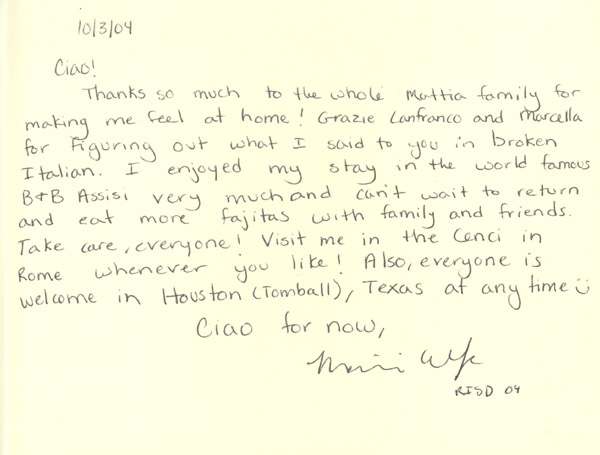 10/3/04
Ciao!
Thanks so much to the whole Mattia family for
making me feel at home! Grazie Lanfranco and Marcella
for figuring out what I said to you in broken
Italian. I enjoyed my stay in the world famous
B+B Assisi very much and can't wait to return
and eat more fajitas with family and friends.
Take care, everyone! Visit me in the Cenci in
Rome whenever you like! Also, everyone is
welcome in Houston (Tomball), Texas at any time
Ciao for now,
RISD 04